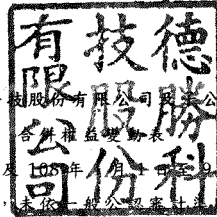 德勝科
技股份
有限公司
技股份有限公司及子公
合併權益變動表
及 108年 月 1 日至 9
，未依一般公認審計準